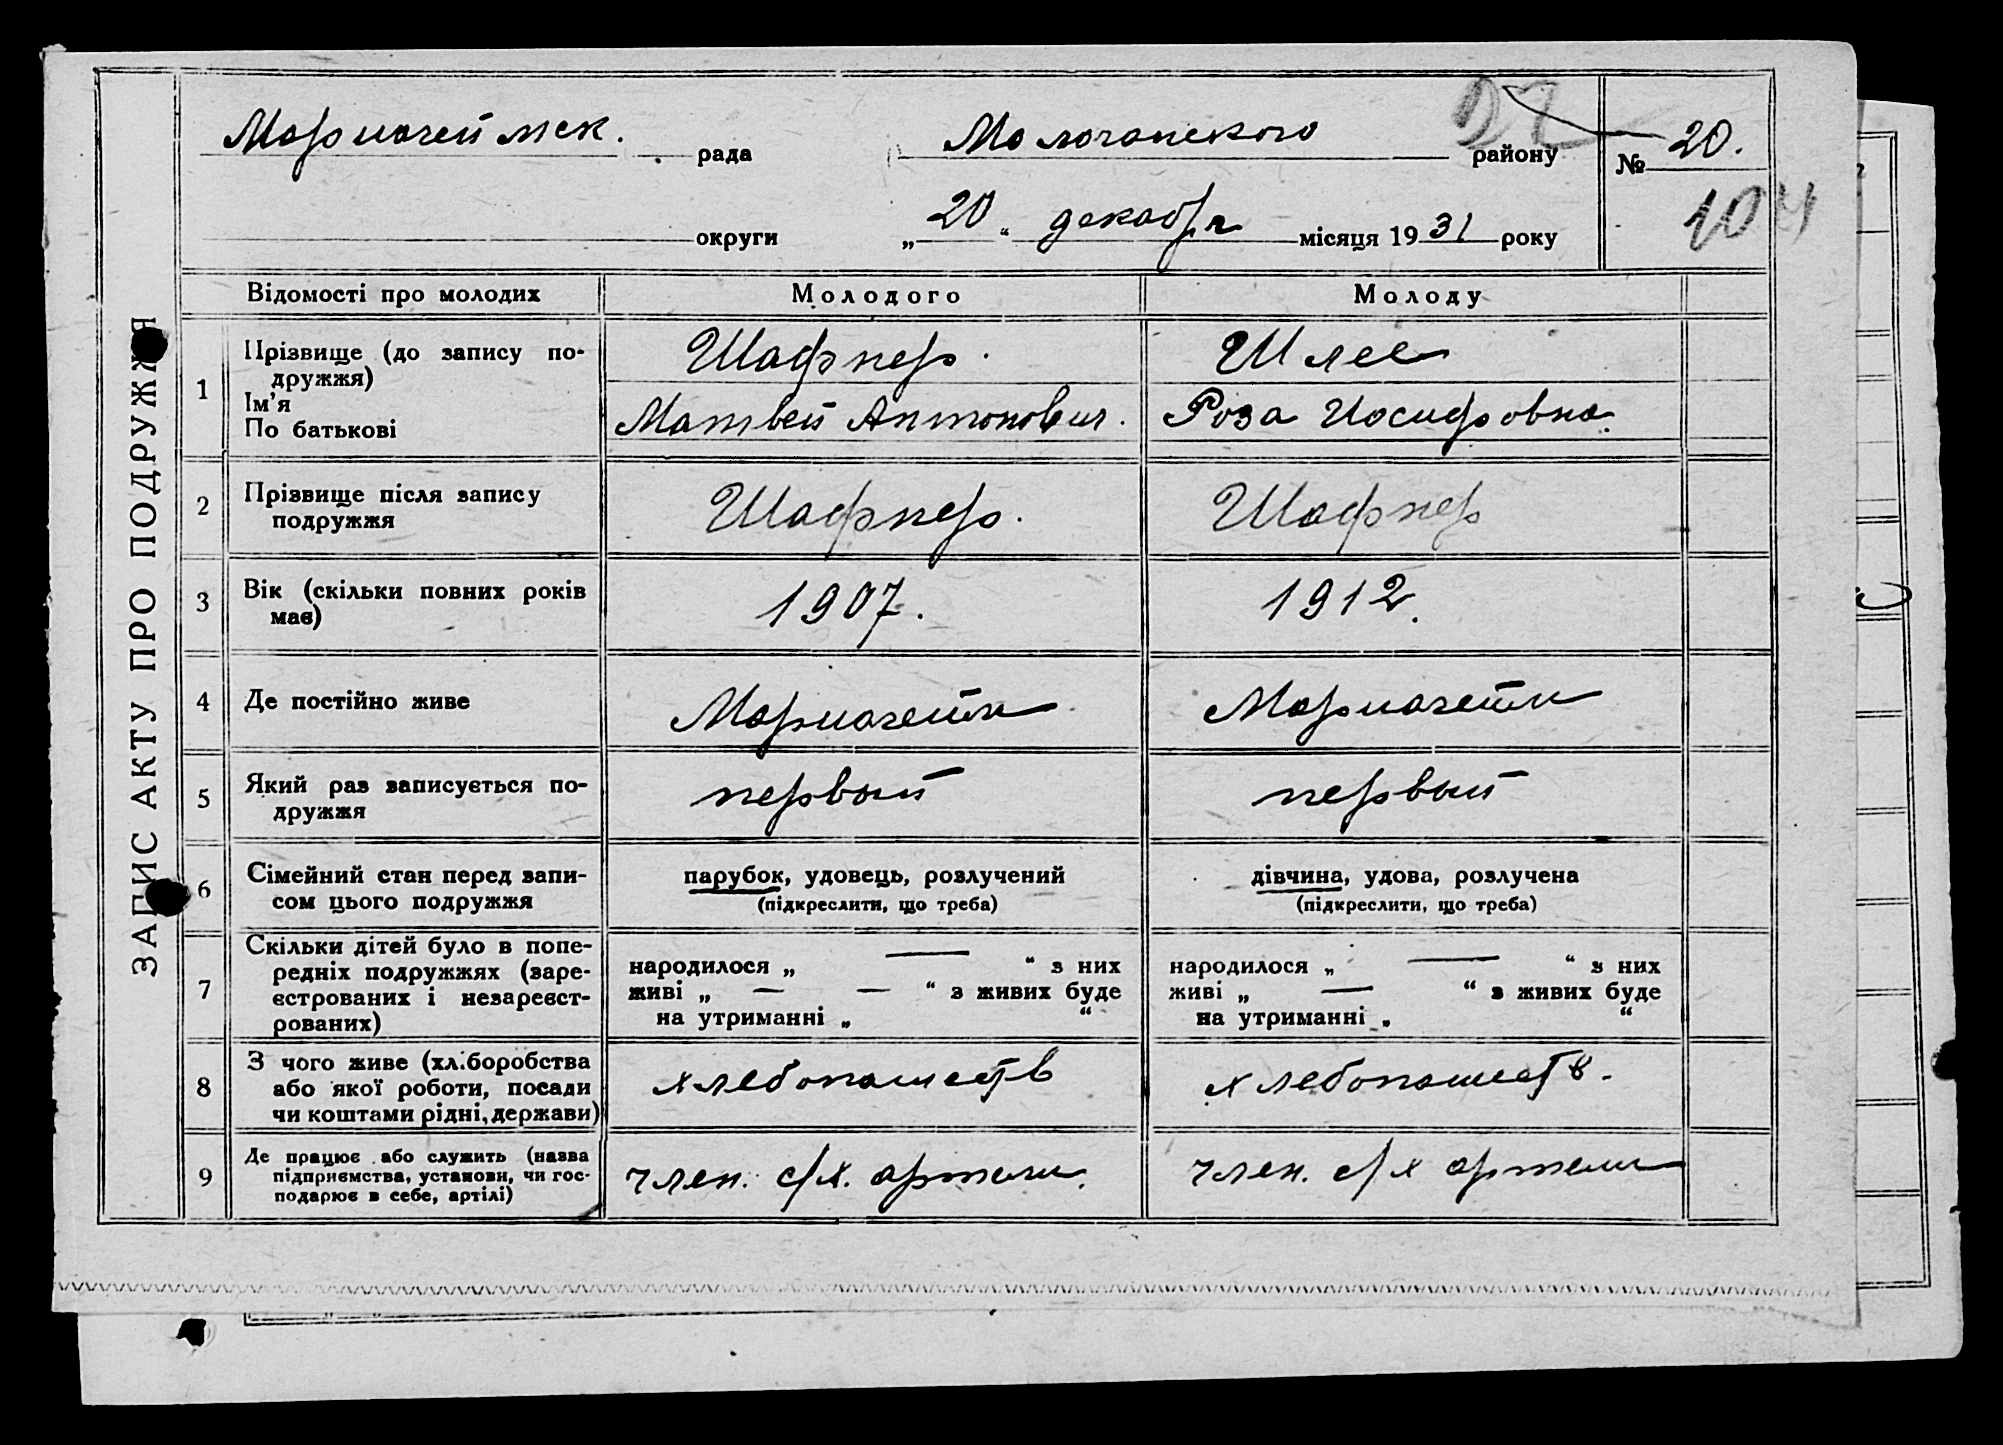 ЗАПИС АКТУ ПРО ПОДРУЖЖЯ
рада
Молочанского району
№ 20.
округи
„ 20 “ декабря місяця 1931 року
104
Відомості про молодих Молодого Молоду
1 Прізвище (до запису по-
дружжя)
Ім'я
По батькові
Шафнер.
Матвей Антонович.
Шлее
Роза Иосифовна.
2 Прізвище після запису
подружжя
Шафнер.
Шафнер
3 Вік (скільки повних років
має)
1907.
1912.
4 Де постійно живе
5 Який раз записується по-
дружжя
первый
первый
6 Сімейний стан перед запи-
сом цього подружжя
парубок, удовець, розлучений
(підкреслити, що треба)
дівчина, удова, розлучена
(підкреслити, що треба)
7 Скільки дітей було в попе-
редніх подружжях (заре-
єстрованих і незареєст-
рованих)
народилося „ — “ з них
живі „ — — “ з живих буде
на утриманні „ “
народилося „ — “ з них
живі „ — “ з живих буде
на утриманні „ “
8 З чого живе (хліборобства
або якої роботи, посади
чи коштами рідні, держави)
хлебопашеств
хлебопашеств.
9 Де працює або служить (назва
підприємства, установи, чи гос-
подарює в себе, артілі)
член. с/х. артели.
член. с/х артели